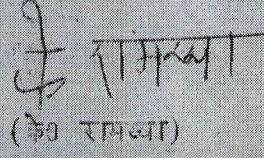 के रामय्या
(के० रामय्या)